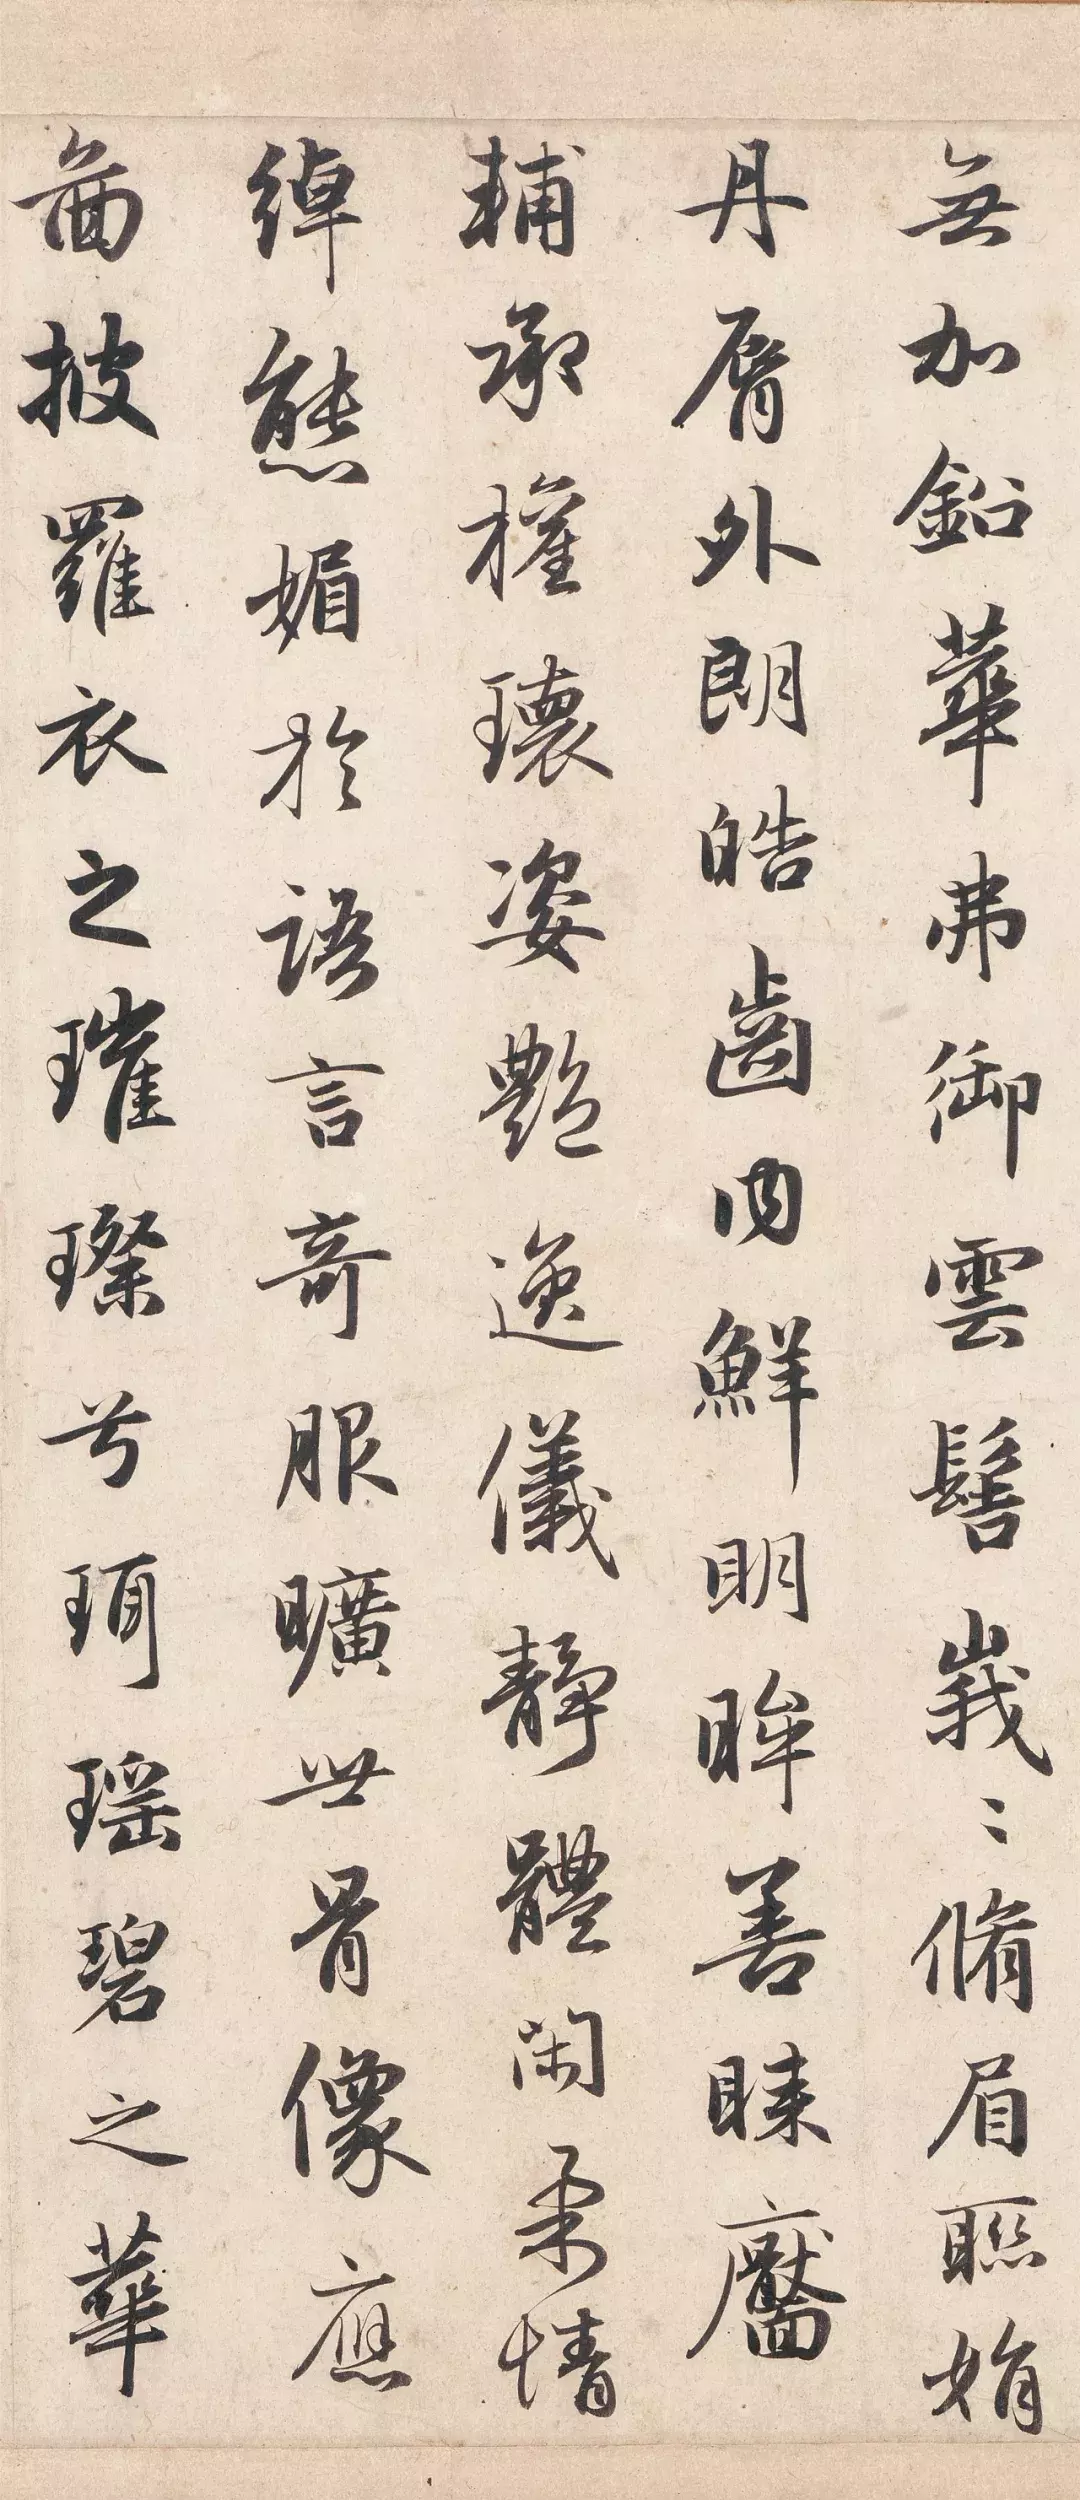 無加鉛華弗御雲髻峩〻脩眉聮娟
丹脣外朗皓齒内鮮明眸善睐靨
輔承權瓌姿艶逸儀靜體閑柔情
綽態媚於語言奇服曠世骨像應
啚披羅衣之璀璨兮珥瑶碧之華